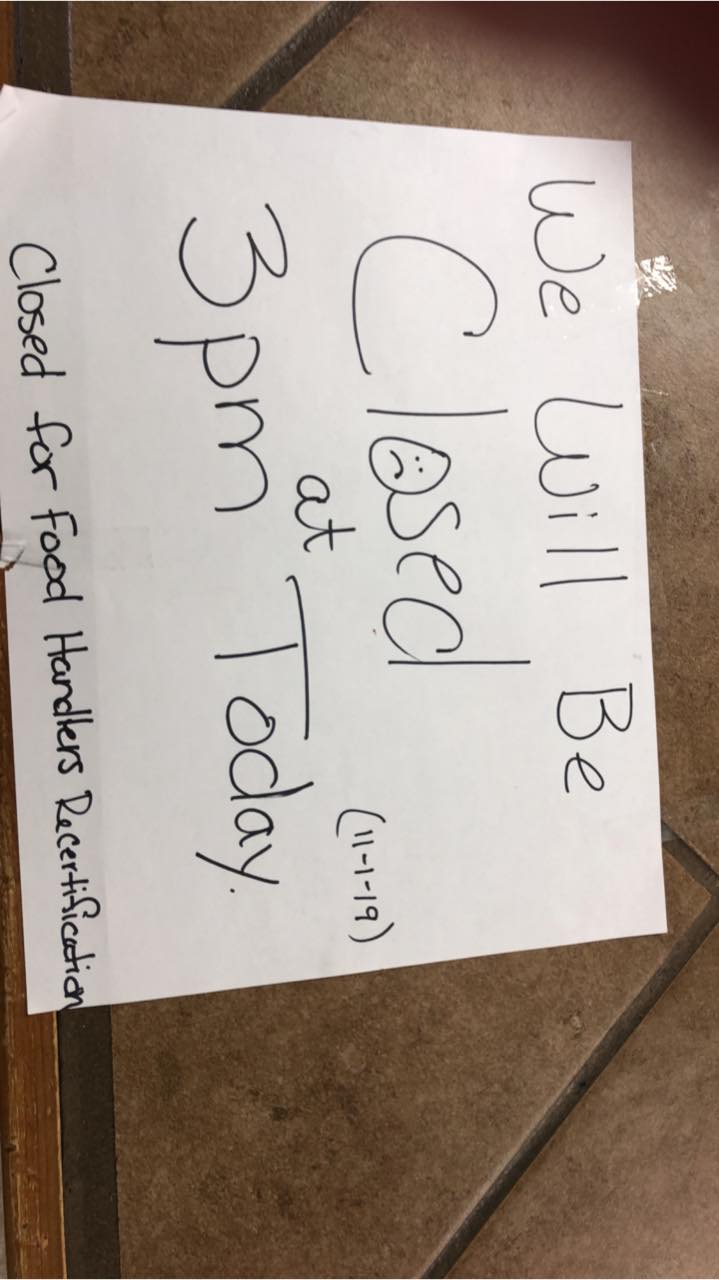 We Will Be
Closed
at (11-1-19)
3pm Today.
Closed for Food Handlers Recertification